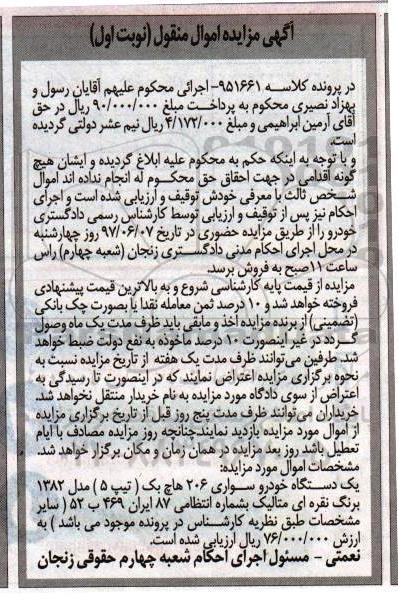 آگهی مزایده اموال منقول (نوبت اول)
در پرونده کلاسه ۹۵۱۶۶۱- اجرائی محکوم علیهم آقایان رسول و
بهزاد نصیری محکوم به پرداخت مبلغ ۹۰/۰۰۰/۰۰۰ ریال در حق
آقای آرمین ابراهیمی و مبلغ ۴/۱۷۲/۰۰۰ ریال نیم عشر دولتی گردیده
است
و با توجه به اینکه حکم به محکوم علیه ابلاغ گردیده و ایشان هیچ
گونه اقدامی در جهت احقاق حق محکوم له انجام نداده اند اموال
شخص ثالث با معرفی خودش توقیف و ارزیابی شده است و اجرای
احکام نیز پس از توقیف و ارزیابی توسط کارشناس رسمی دادگستری
خودرو را از طریق مزایده حضوری در تاریخ ۹۷/۰۶/۰۷ روز چهارشنبه
در محل اجرای احکام مدنی دادگستری زنجان (شعبه چهارم) راس
ساعت ۱۱صبح به فروش برسد.
مزایده از قیمت پایه کارشناسی شروع و به بالاترین قیمت پیشنهادی
فروخته خواهد شد و ۱۰ درصد ثمن معامله نقدا یا بصورت چک بانکی
(تضمینی) از برنده مزایده اخذ و مابقی باید ظرف مدت یک ماه وصول
گردد در غیر اینصورت ۱۰ درصد ماخوذه به نفع دولت ضبط خواهد
شد. طرفین می‌توانند ظرف مدت یک هفته از تاریخ مزایده نسبت به
نحوه برگزاری مزایده اعتراض نمایند که در اینصورت تا رسیدگی به
اعتراض از سوی دادگاه مورد مزایده به نام خریدار منتقل نخواهد شد.
خریداران می‌توانند ظرف مدت پنج روز قبل از تاریخ برگزاری مزایده
از اموال مورد مزایده بازدید نمایند.چنانچه روز مزایده مصادف با ایام
تعطیل باشد روز بعد مزایده در همان زمان و مکان برگزار خواهد شد.
مشخصات اموال مورد مزایده:
یک دستگاه خودرو سواری ۲۰۶ هاچ بک ( تیپ ۵ ) مدل ۱۳۸۲
برنگ نقره ای متالیک بشماره انتظامی ۸۷ ایران ۴۶۹ ب ۵۲ ( سایر
مشخصات طبق نظریه کارشناس در پرونده موجود می باشد ) به
ارزش ۷۶/۰۰۰/۰۰۰ ریال ارزیابی شده است.
نعمتی - مسئول اجرای احکام شعبه چهارم حقوقی زنجان